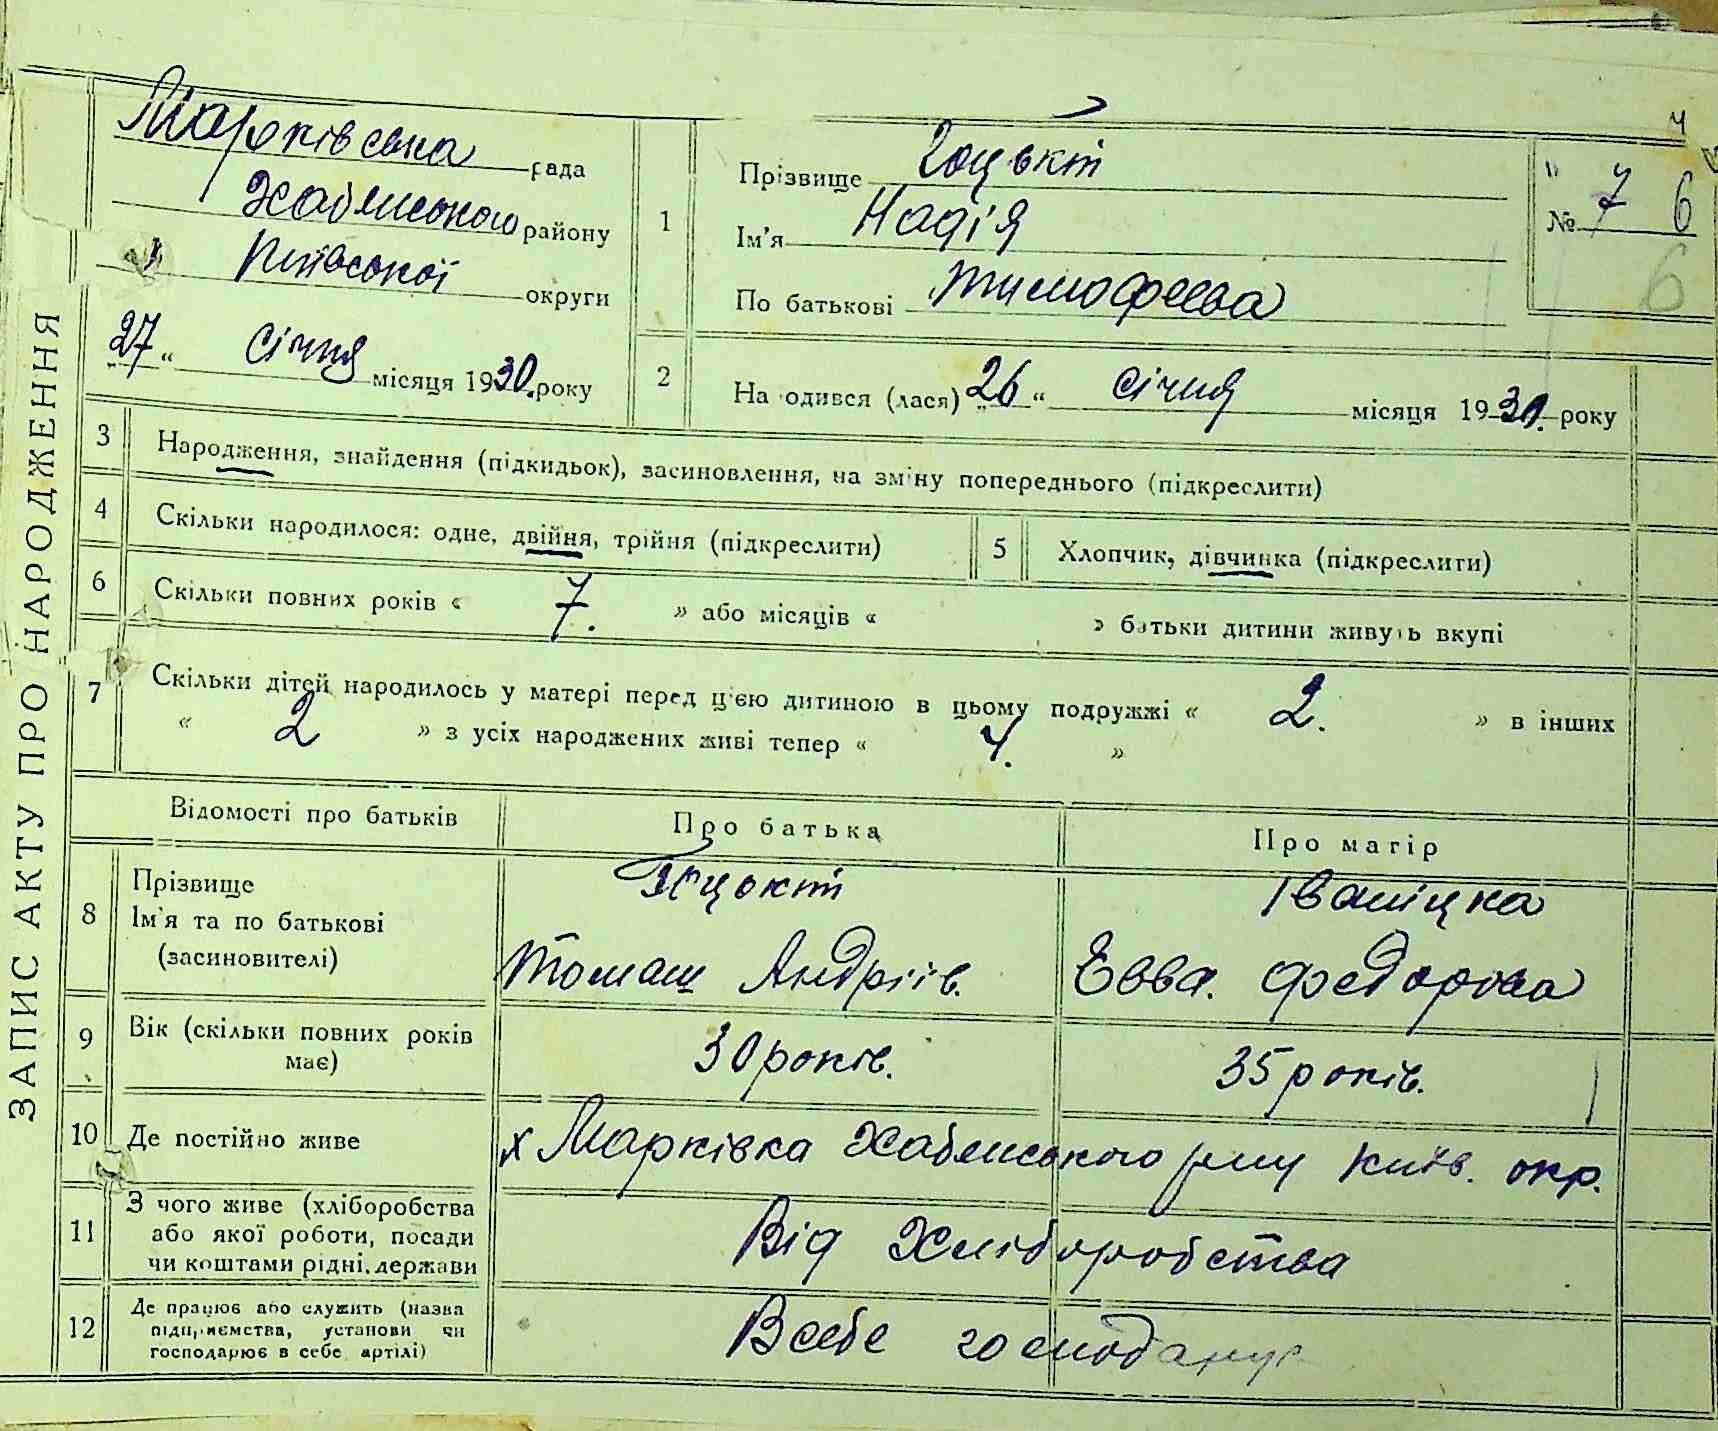 ЗАПИС АКТУ ПРО НАРОДЖЕННЯ
Марківська рада
Хабенського району
Київської округи
27 “ Січня місяця 1930. року
1
Прізвище Гоцькт
Ім’я Надія
По батькові Тимофеева
№ 7 6
6
2
На одився (лася) „26“ Січня місяця 1930. року
3 Народження, знайдення (підкидьок), засиновлення, на зміну попереднього (підкреслити)
4 Скільки народилося: одне, двійня, трійня (підкреслити)
5 Хлопчик, дівчинка (підкреслити)
6 Скільки повних років « 7. » або місяців « » батьки дитини живуть вкупі
7 Скільки дітей народилось у матері перед ц'єю дитиною в цьому подружжі « 2. » в інших
« 2 » з усіх народжених живі тепер « 4. »
Відомості про батьків Про батька Про матір
8 Прізвище
Ім'я та по батькові
(засиновителі)
Іваніцка
Томаш Андріїв. Евва. Федорова
9 Вік (скільки повних років має) 30 років. 35 років.
10 Де постійно живе х Марківка Хабенського р-ну Київ. окр.
11 З чого живе (хліборобства
або якої роботи, посади
чи коштами рідні, держави
Від Хліборобства
12 Де працює або служить (назва
підприємства, установи чи
господарює в себе, артілі)
В себе господарує